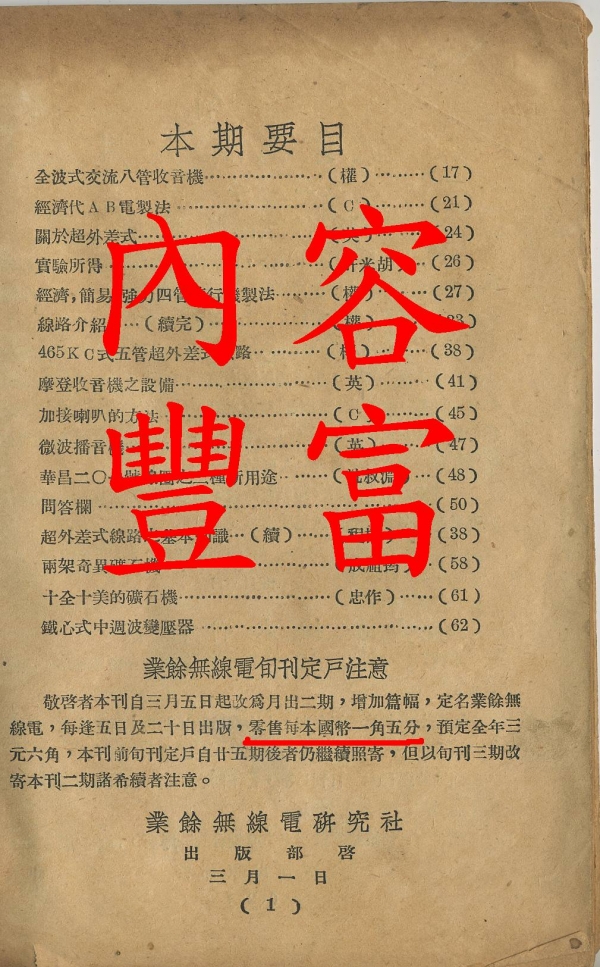 本期要目
全波式交流八管收音機……(權)……(17)
經濟代AB電製法……(C)……(21)
關於超外差式……(英)……(24)
實驗所得……(26)
經濟,簡易,強力四管……製法……(權)……(27)
線路介紹……(續完)……(權)
465KC式五管超外差式線路……(38)
摩登收音機之設備……(英)……(41)
加接喇叭的方法……(C)……(45)
微波播音機……(英)……(47)
華昌二〇……用途……(48)
問答欄……(50)
超外差式線路之基本知識…(續)……(38)
兩架奇異礦石機……(58)
十全十美的礦石機……(忠作)……(61)
鐵心式中週波變壓器……(62)
內容
豐富
業餘無線電旬刊定戶注意
敬啓者本刊自三月五日起改爲月出二期,增加篇幅,定名業餘無
線電,每逢五日及二十日出版,零售每本國幣一角五分,預定全年三
元六角,本刊前旬刊定戶自廿五期後者仍繼續照寄,但以旬刊三期改
寄本刊二期諸希續者注意。
業餘無線電硏究社
出版部啓
三月一日
(1)